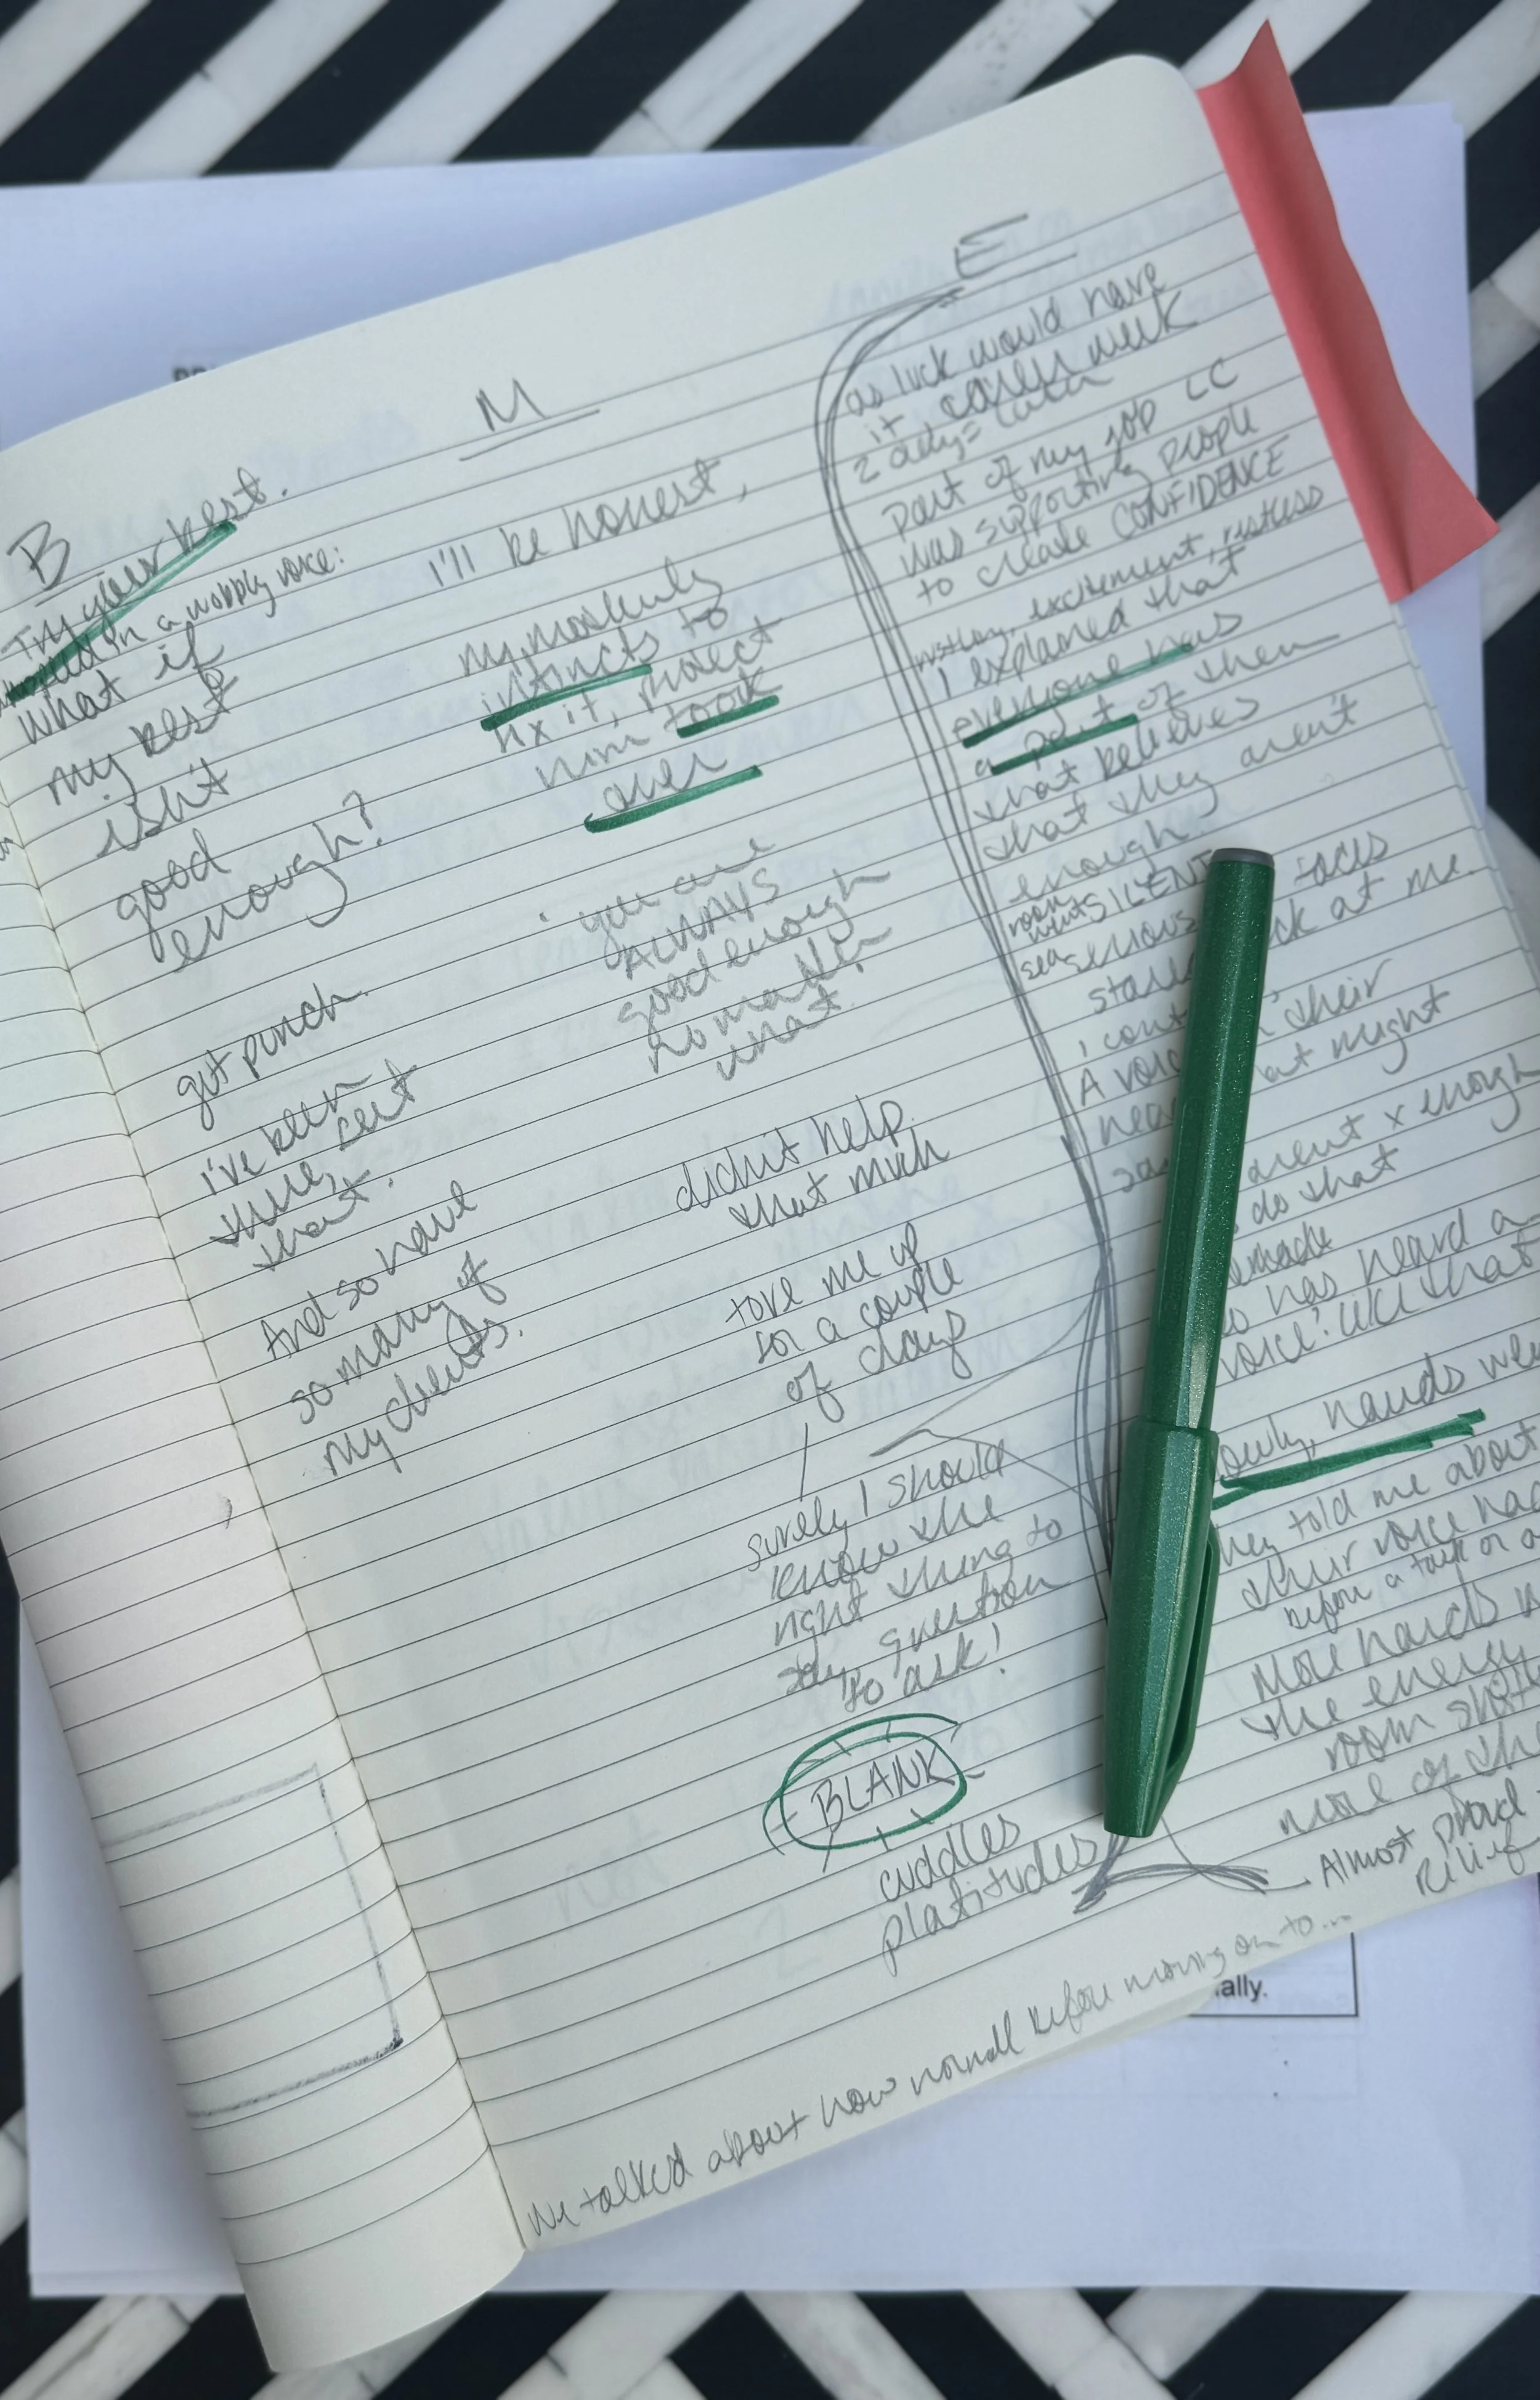 B
Try your best.
in a wobbly voice:
what if
my best
isn't
good
enough?
gut punch.
i've been
there,
that.
And so have
so many of
my clients.
M
i'll be honest,
my motherly
instincts to
fix it, protect
him took
over
you are
ALWAYS
good enough
no matter
what.
didn't help
that much
tore me up
for a couple
of days
surely I should
know the
right thing to
say, question
to ask!
BLANK
cuddles
platitudes
E
as luck would have
it career week
2 days later
part of my job LC
was supporting people
to create CONFIDENCE
excitement, restless
I explained that
everyone has
a part of them
that believes
that they aren't
enough
room went SILENT faces
serious
stared ck at me.
i cont their
A voic at might
hea
sa arent x enough
do that
made
o has heard a
voice? like that
owly, hands we
hey told me about
their voice had
before a talk or a
More hands w
the energy
room shift
more of the
Almost proud
relief
We talked about how normal before moving on to...
ally.